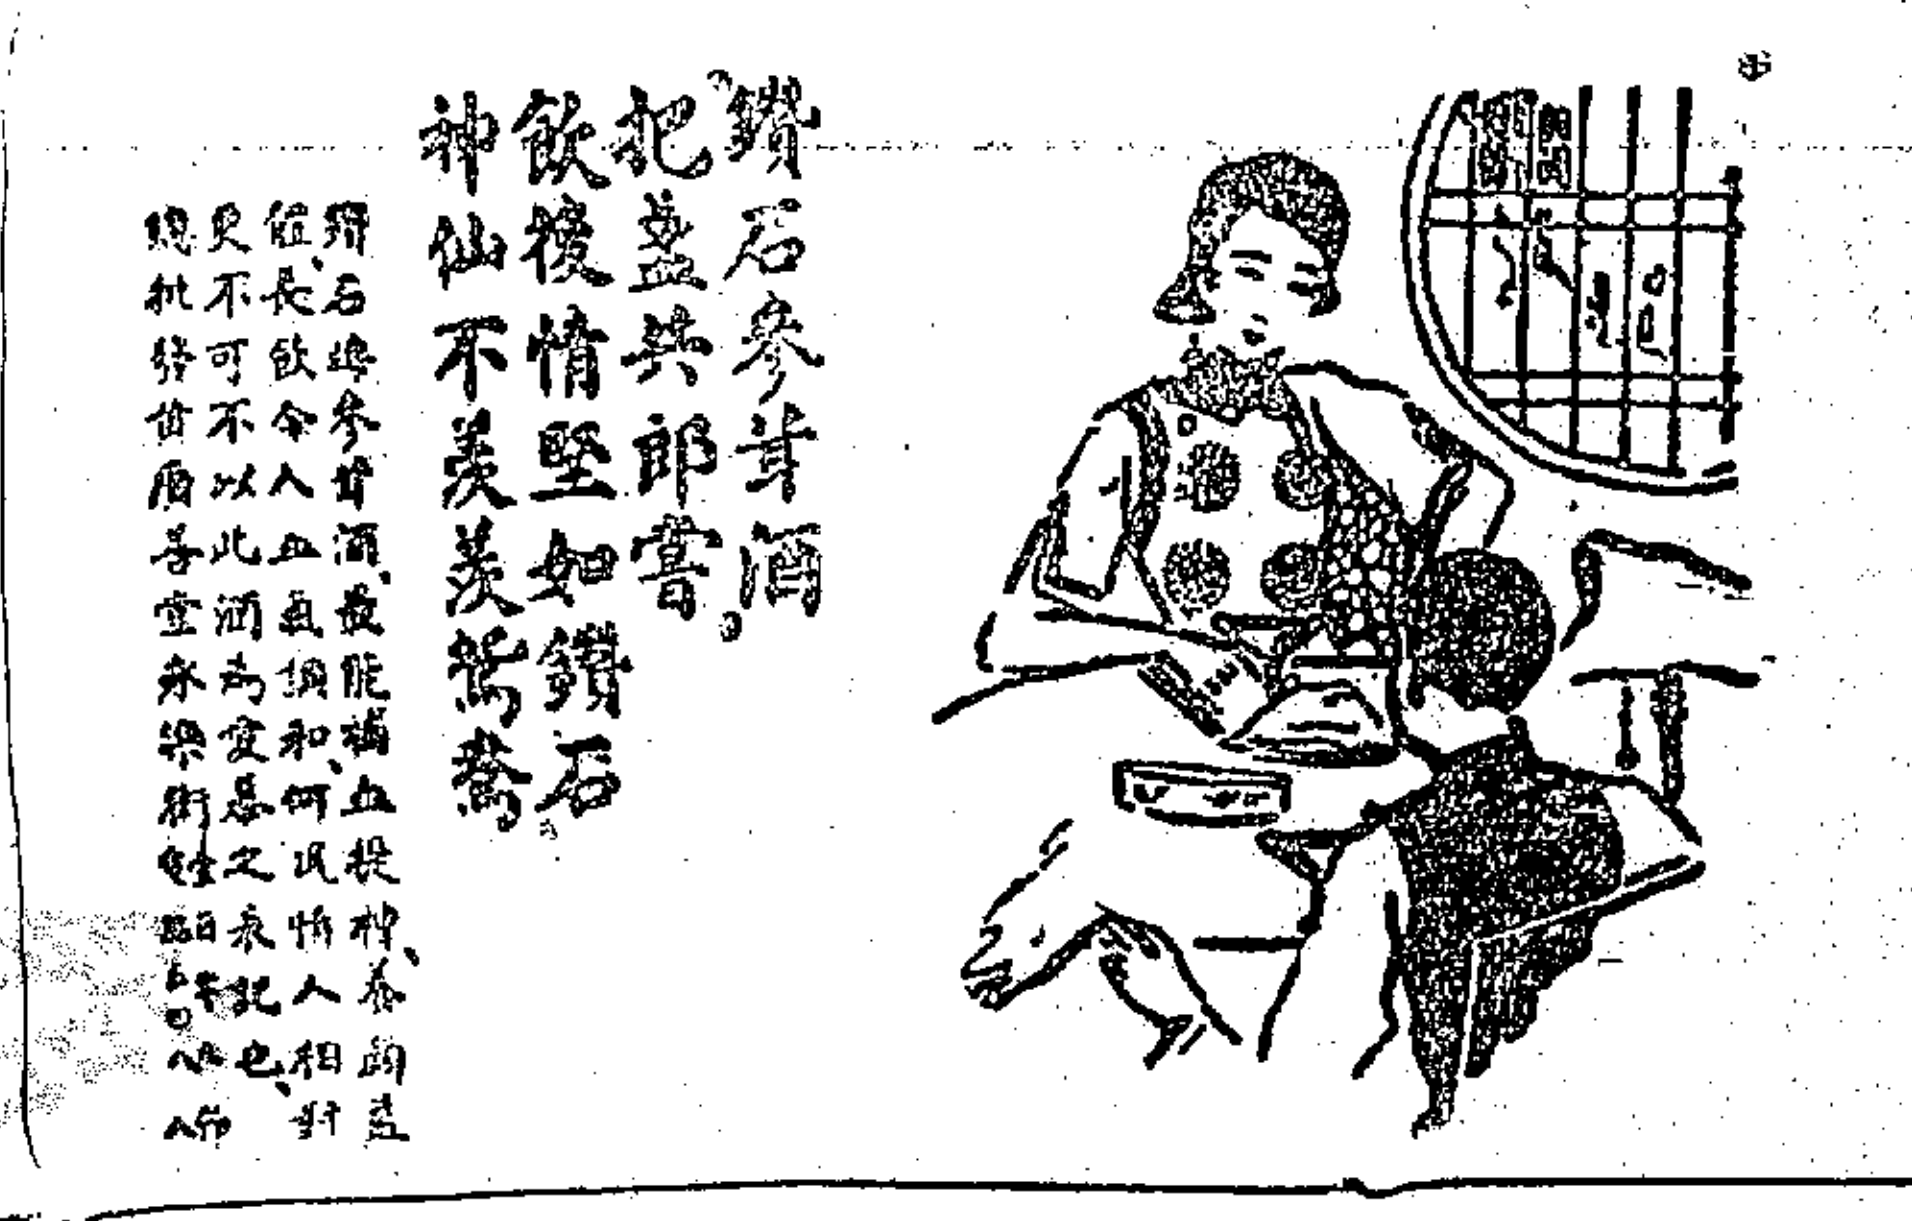 鑽石參茸酒。
把盞共郎嘗
飲後情堅如鑽石
神仙不羡羡鴛鴦
鑽石參茸酒、最能補血提神、養顏益
長飲令人血氣調和、何況情人相對
更不可不以此酒為愛慕之表記也、
總批發